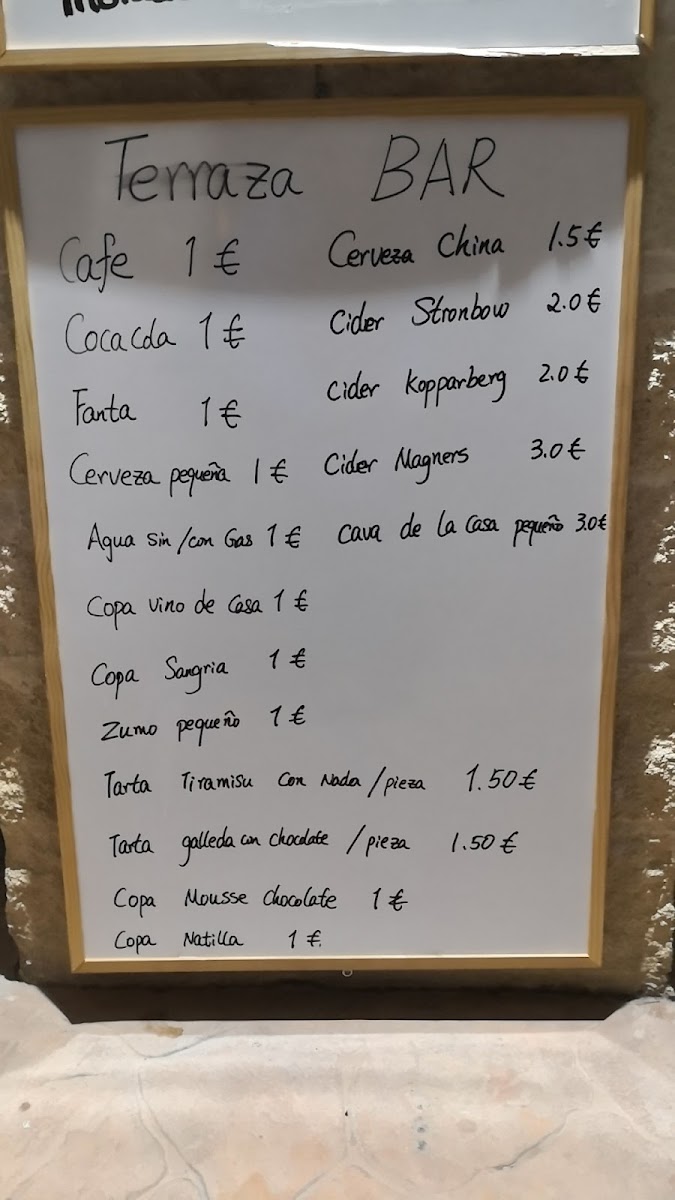 Terraza BAR
Cafe 1 €
Cocacola 1 €
Fanta 1 €
Cerveza pequeña 1 €
Agua sin/con Gas 1 €
Copa vino de Casa 1 €
Copa Sangria 1 €
Zumo pequeño 1 €
Tarta Tiramisu con Nada /pieza 1.50 €
Tarta galleda con chocolate /pieza 1.50 €
Copa Mousse chocolate 1 €
Copa Natilla 1 €.
Cerveza China 1.5 €
Cider Stronbow 2.0 €
Cider Kopparberg 2.0 €
Cider Magners 3.0 €
Cava de la Casa pequeño 3.0 €